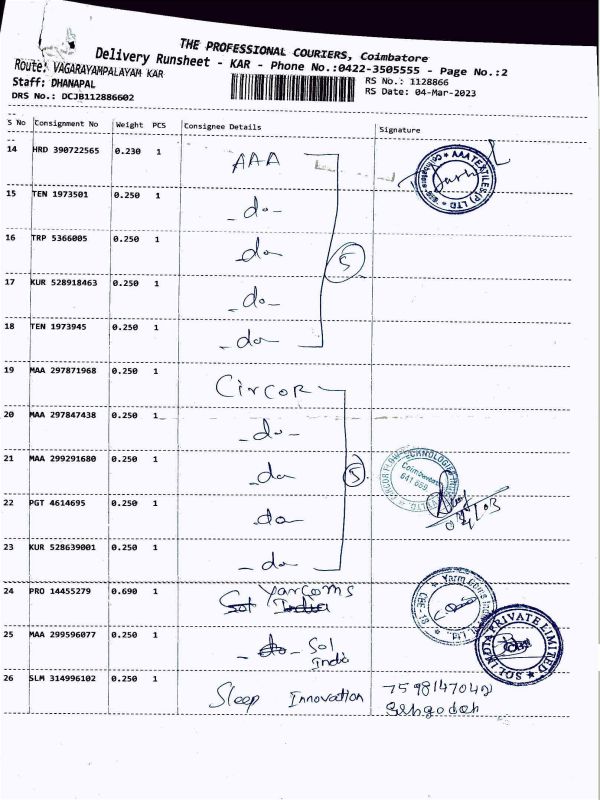 THE PROFESSIONAL COURIERS, Coimbatore
Delivery Runsheet - KAR - Phone No.:0422-3505555 - Page No.:2
Route: VAGARAYAMPALAYAM KAR
Staff: DHANAPAL
DRS No.: DCJB112886602
RS No.: 1128866
RS Date: 04-Mar-2023
S No Consignment No Weight PCS Consignee Details Signature
14 HRD 390722565 0.230 1 AAA
AAA TEXTILES (P) LTD
15 TEN 1973501 0.250 1 -do-
16 TRP 5366005 0.250 1 -do-
5
17 KUR 528918463 0.250 1 -do-
18 TEN 1973945 0.250 1 -do-
19 MAA 297871968 0.250 1 CirCOR
20 MAA 297847438 0.250 1 -do-
21 MAA 299291680 0.250 1 -do-
5
Coimbatore
641 659
22 PGT 4614695 0.250 1 -do-
23 KUR 528639001 0.250 1 -do-
24 PRO 14455279 0.690 1 Yarcoms
Sol India
25 MAA 299596077 0.250 1 -do- Sol
India
SOL INDIA PRIVATE LIMITED
26 SLM 314996102 0.250 1 Sleep Innovation 7598147042